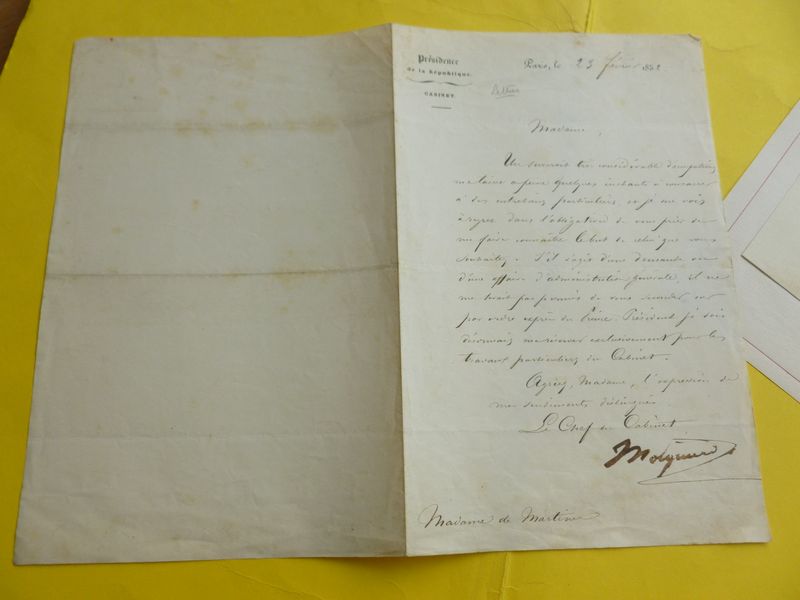 Présidence
de la République.
CABINET
Paris, le 23 février 1852
Madame,
Un surcroit très considérable d'occupations
me laisse à peine quelques instants à consacrer
à des entretiens particuliers, et je me vois
à regret dans l'obligation de vous prier de
me faire connaître le but de celui que vous
souhaitez. S'il s'agit d'une demande ou
d'une affaire d'administration générale, il ne
me serait pas permis de vous car
par ordre exprès du Prince Président je dois
désormais me réserver exclusivement pour les
travaux particuliers du Cabinet.
Agréez, Madame, l'expression de
mes sentiments distingués
Le Chef du Cabinet
Mocquard
Madame de